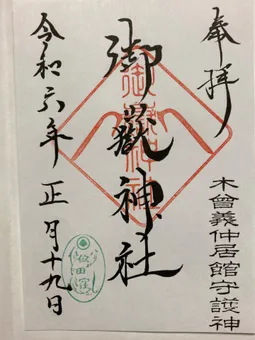 奉拝
木曾義仲居館守護神
御嶽神社
御嶽神社
令和六年正月十九日